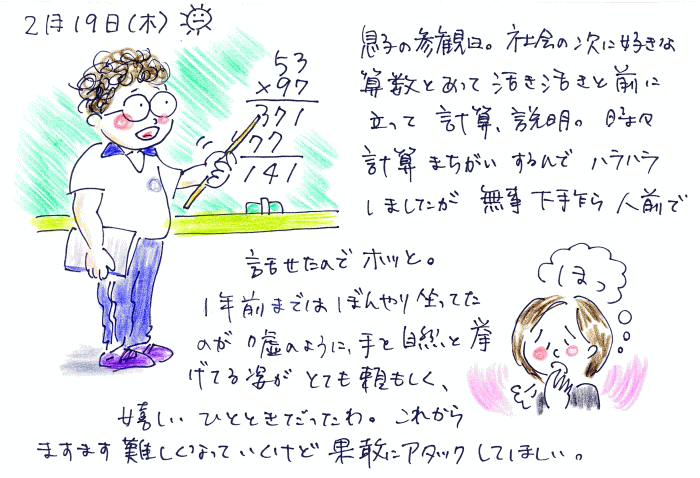 2月19日(木)
53
×97
371
77
141
息子の参観日。社会の次に好きな
算数とあって活き活きと前に
立って計算、説明。時々
計算まちがいするんでハラハラ
しましたが無事下手乍ら人前で
話せたのでホッと。
1年前まではぼんやり坐ってた
のが嘘のように、手を自然と挙
げてる姿がとても頼もしく、
嬉しいひとときだったわ。これから
ますます難しくなっていくけど果敢にアタックしてほしい。
ほっ